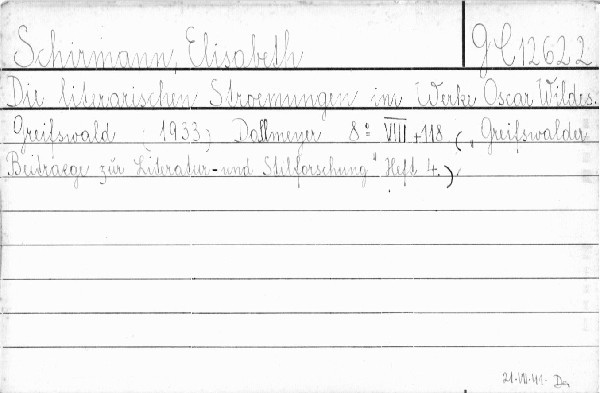 Schirmann, Elisabeth gC12622
Die literarischen Stroemungen im Werke Oscar Wildes.
Greifswald (1933) Dallmeyer 8º VIII+118 („Greifswalder
Beitraege zur Literatur- und Stilforschung" Heft 4.)
21.VII.41.